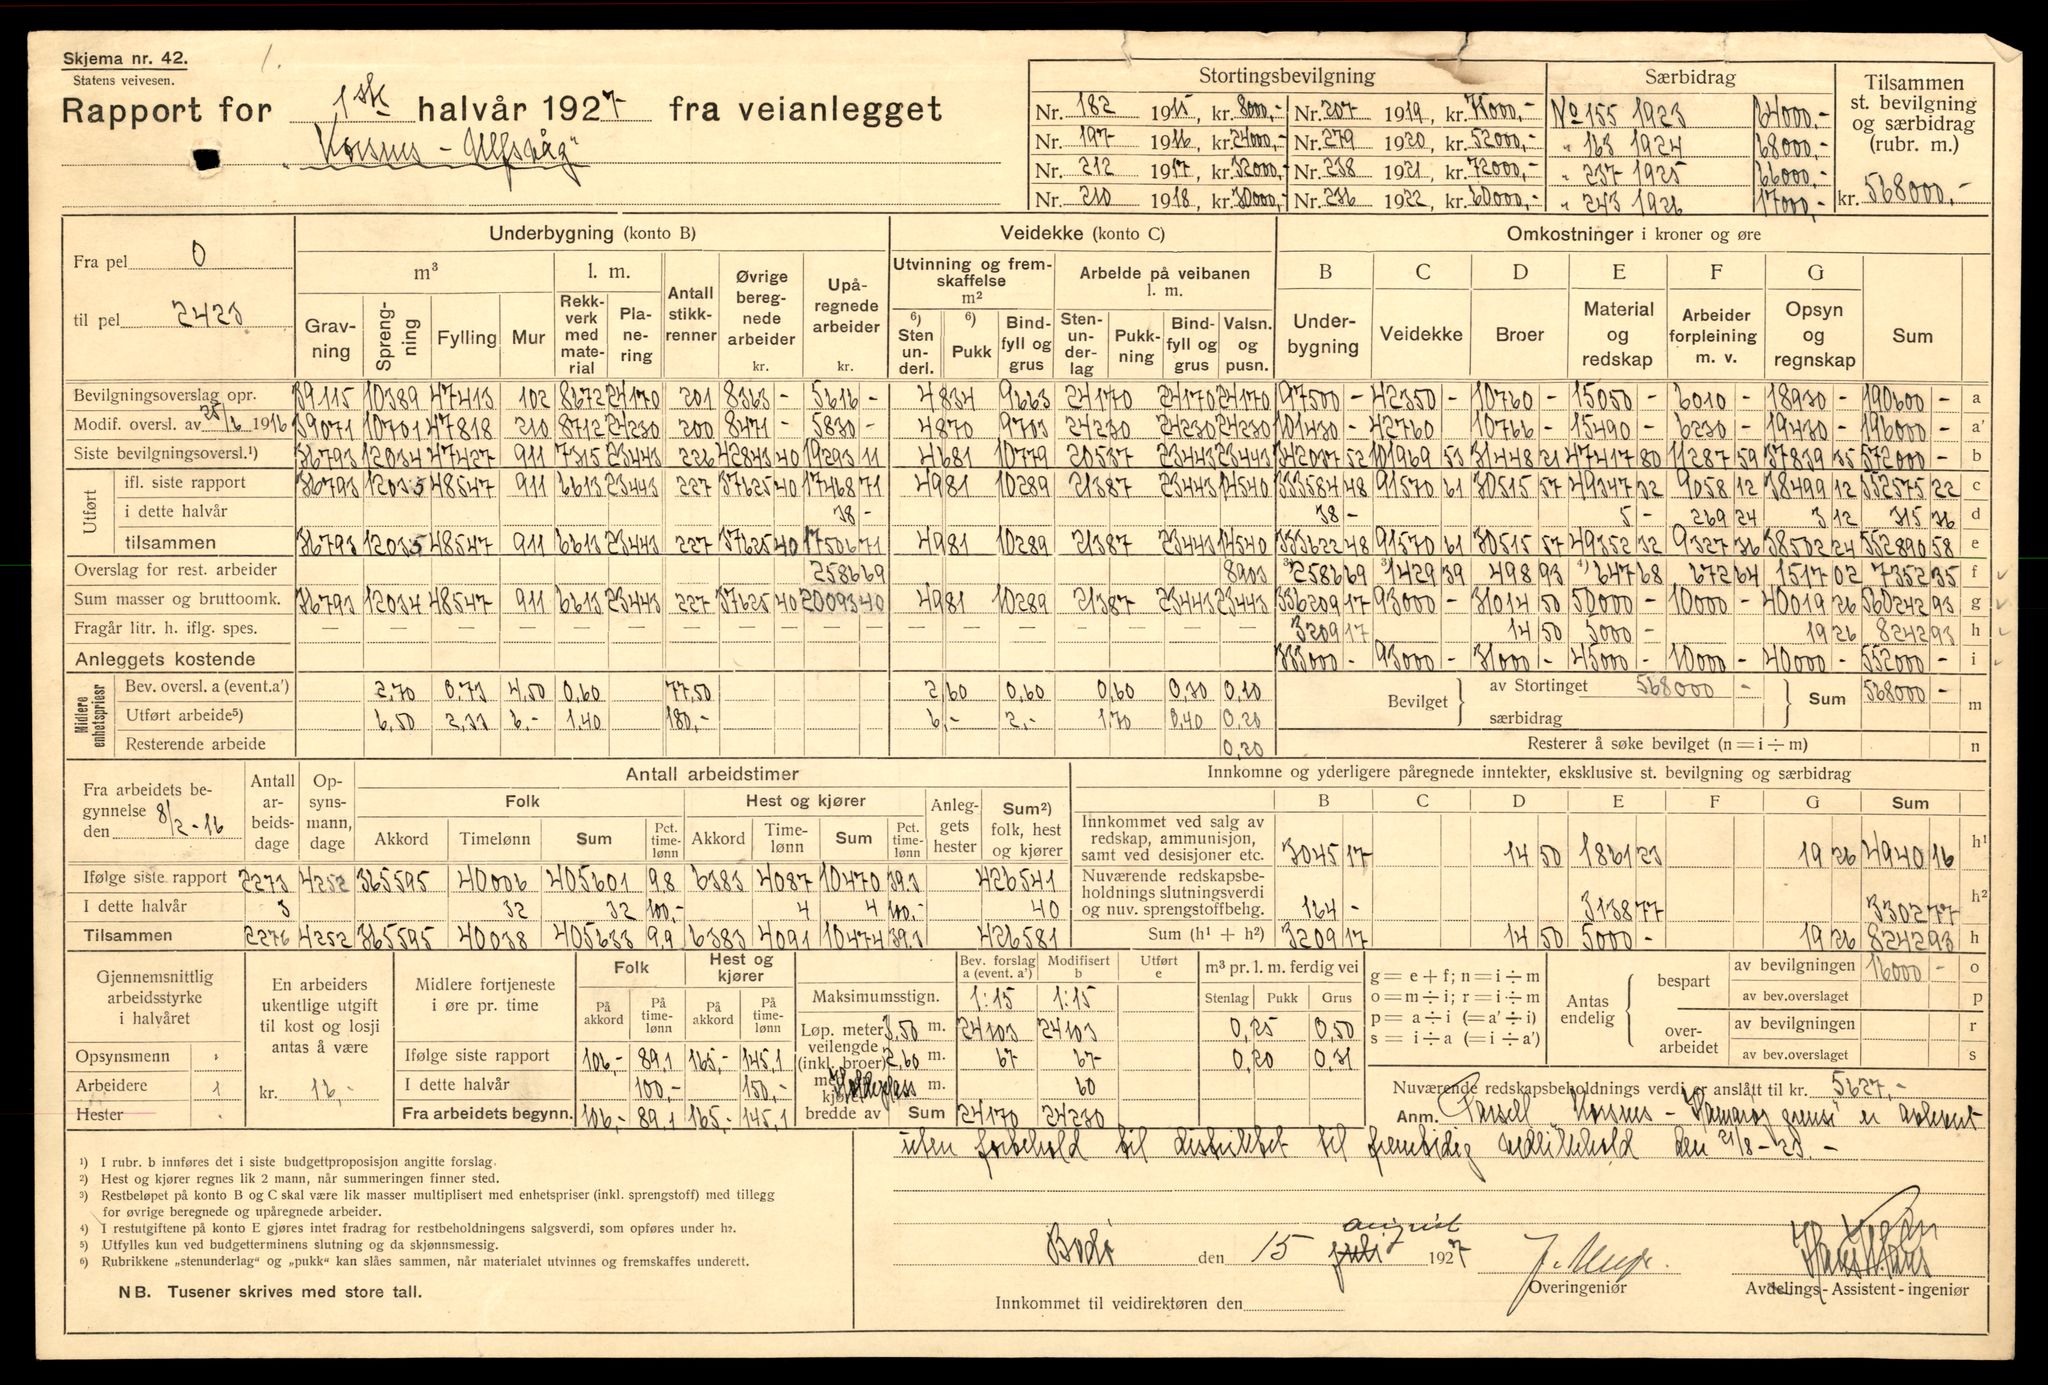 Skjema nr. 42.
Statens veivesen.
Rapport for 1ste halvår 1927 fra veianlegget
"Korsnes - Ulfsvåg"
Stortingsbevilgning
Nr. 182 1915, kr. 8000,- Nr. 207 1919, kr. 75000,-
Nr. 197 1916, kr. 24000,- Nr. 279 1920, kr. 52000,-
Nr. 212 1917, kr. 32000,- Nr. 238 1921, kr. 72000,-
Nr. 210 1918, kr. 30000,- Nr. 236 1922, kr. 60000,-
Særbidrag
No 155 1923 64000,-
" 163 1924 68000,-
" 237 1925 66000,-
" 243 1926 17000,-
Tilsammen
st. bevilgning
og særbidrag
(rubr. m.)
kr. 568000,-
Fra pel 0
til pel 2423
Underbygning (konto B) Veidekke (konto C) Omkostninger i kroner og øre
m³ l. m. Antall stikkrenner Øvrige beregnede arbeider kr. Upåregnede arbeider kr.
Utvinning og fremskaffelse m² Arbeide på veibanen l. m.
Gravning Sprengning Fylling Mur Rekkverk med material Planering
6) Sten underl. 6) Pukk Bindfyll og grus Stenunderlag Pukkning Bindfyll og grus Valsn. og pusn.
B Underbygning C Veidekke D Broer E Material og redskap F Arbeider forpleining m. v. G Opsyn og regnskap Sum
Bevilgningsoverslag opr. 39115 10389 47413 102 8672 24170 201 8363 - 5616 - 4834 9663 24170 24170 24170 97500 - 42350 - 10760 - 15050 - 6010 - 18930 - 190600 - a
Modif. oversl. av 25/6 1916 39071 10701 47818 210 8712 24230 200 8471 - 5830 - 4870 9703 24230 24230 24230 101430 - 42760 10766 - 15490 - 6230 - 19430 - 196000 - a'
Siste bevilgningsoversl.¹) 36793 12034 47427 911 7315 23443 226 42843 40 19293 11 4681 10779 20537 23443 23443 342037 52 101969 53 31448 21 47417 80 11287 59 37839 35 572000 - b
Utført
ifl. siste rapport 36793 12035 48547 911 6613 23443 227 37625 40 17468 71 4981 10289 21387 23443 14540 333584 48 91570 61 30515 57 49347 32 9058 12 38499 12 552575 22 c
i dette halvår 38 - 38 - 5 - 269 24 3 12 315 36 d
tilsammen 36793 12035 48547 911 6613 23443 227 37625 40 17506 71 4981 10289 21387 23443 14540 333622 48 91570 61 30515 57 49352 32 9327 36 38502 24 552890 58 e
Overslag for rest. arbeider 2586 69 8903 ³) 2586 69 ³) 1429 39 498 93 ⁴) 647 68 672 64 1517 02 7352 35 f
Sum masser og bruttoomk. 36793 12034 48547 911 6613 23443 227 37625 40 20093 40 4981 10289 21387 23443 23443 336209 17 93000 - 31014 50 50000 - 10000 - 40019 26 560242 93 g
Fragår litr. h. iflg. spes. 3209 17 14 50 5000 - 19 26 8242 93 h
Anleggets kostende 333000 - 93000 - 31000 - 45000 - 10000 - 40000 - 552000 - i
Midlere enhetspriser
Bev. oversl. a (event. a') 2,70 0,73 4,50 0,60 77,50 2,60 0,60 0,60 0,30 0,10
Utført arbeide⁵) 6,50 2,33 6,- 1,40 180,- 6,- 2,- 1,70 0,40 0,20
Resterende arbeide 0,20
Bevilget av Stortinget 568000 - særbidrag Sum 568000 - m
Resterer å søke bevilget (n = i ÷ m) n
Fra arbeidets begynnelse den 8/2 - 16
Antall arbeidsdage Opsynsmann, dage
Antall arbeidstimer
Folk Hest og kjører Anleggets hester Sum²) folk, hest og kjører
Akkord Timelønn Sum Pct. timelønn Akkord Timelønn Sum Pct. timelønn
Ifølge siste rapport 2273 4252 365595 40006 405601 9.8 6383 4087 10470 39.3 426541
I dette halvår 3 32 32 100,- 4 4 100,- 40
Tilsammen 2276 4252 365595 40038 405633 9.9 6383 4091 10474 39.3 426581
Innkomne og yderligere påregnede inntekter, eksklusive st. bevilgning og særbidrag
B C D E F G Sum
Innkommet ved salg av redskap, ammunisjon, samt ved desisjoner etc. 3045 17 14 50 1861 23 19 26 4940 16 h¹
Nuværende redskapsbeholdnings slutningsverdi og nuv. sprengstoffbehg. 164 - 3138 77 3302 77 h²
Sum (h¹ + h²) 3209 17 14 50 5000 - 19 26 8242 93 h
Gjennemsnittlig arbeidsstyrke i halvåret
Opsynsmenn "
Arbeidere 1
Hester
En arbeiders ukentlige utgift til kost og losji antas å være
kr. 16,-
Midlere fortjeneste i øre pr. time
Folk Hest og kjører
På akkord På timelønn På akkord På timelønn
Ifølge siste rapport 106,- 89,1 165,- 145,1
I dette halvår 100,- 150,-
Fra arbeidets begynn. 106,- 89,1 165,- 145,1
Bev. forslag a (event. a') Modifisert b Utført e
Maksimumsstign. 1:15 1:15
Løp. meter veilengde (inkl. broer) med kjørebredde av
3,50 m. 24103 24103
2,60 m. 67 67
m. 60
Sum 24170 24230
m³ pr. l. m. ferdig vei
Stenlag Pukk Grus
0,25 0,50
0,20 0,31
g = e + f; n = i ÷ m
o = m ÷ i; r = i ÷ m
p = a ÷ i (= a' ÷ i)
s = i ÷ a (= i ÷ a')
Antas endelig
bespart av bevilgningen 16000 - o
av bev.overslaget p
overarbeidet av bevilgningen r
av bev.overslaget s
Nuværende redskapsbeholdnings verdi er anslått til kr. 5627,-
Anm. Parsell Korsnes - Hamarøy grense er avlevert
uten forbehold til distriktet til fremtidig vedlikehold den 21/8-23. -
¹) I rubr. b innføres det i siste budgettproposisjon angitte forslag.
²) Hest og kjører regnes lik 2 mann, når summeringen finner sted.
³) Restbeløpet på konto B og C skal være lik masser multiplisert med enhetspriser (inkl. sprengstoff) med tillegg
for øvrige beregnede og upåregnede arbeider.
⁴) I restutgiftene på konto E gjøres intet fradrag for restbeholdningens salgsverdi, som opføres under h2.
⁵) Utfylles kun ved budgetterminens slutning og da skjønnsmessig.
⁶) Rubrikkene „stenunderlag" og „pukk" kan slåes sammen, når materialet utvinnes og fremskaffes underett.
NB. Tusener skrives med store tall.
Bodø den 15 juli august 1927
Overingeniør
Avdelings- Assistent-ingeniør
Innkommet til veidirektøren den